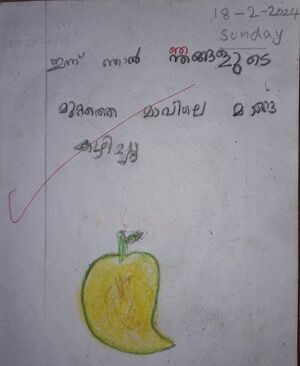 18-2-2024
Sunday
ഇന്ന് ഞാൻ ഞങ്ങളുടെ
മുറ്റത്തെ മാവിലെ മാങ്ങ
കഴിച്ചു